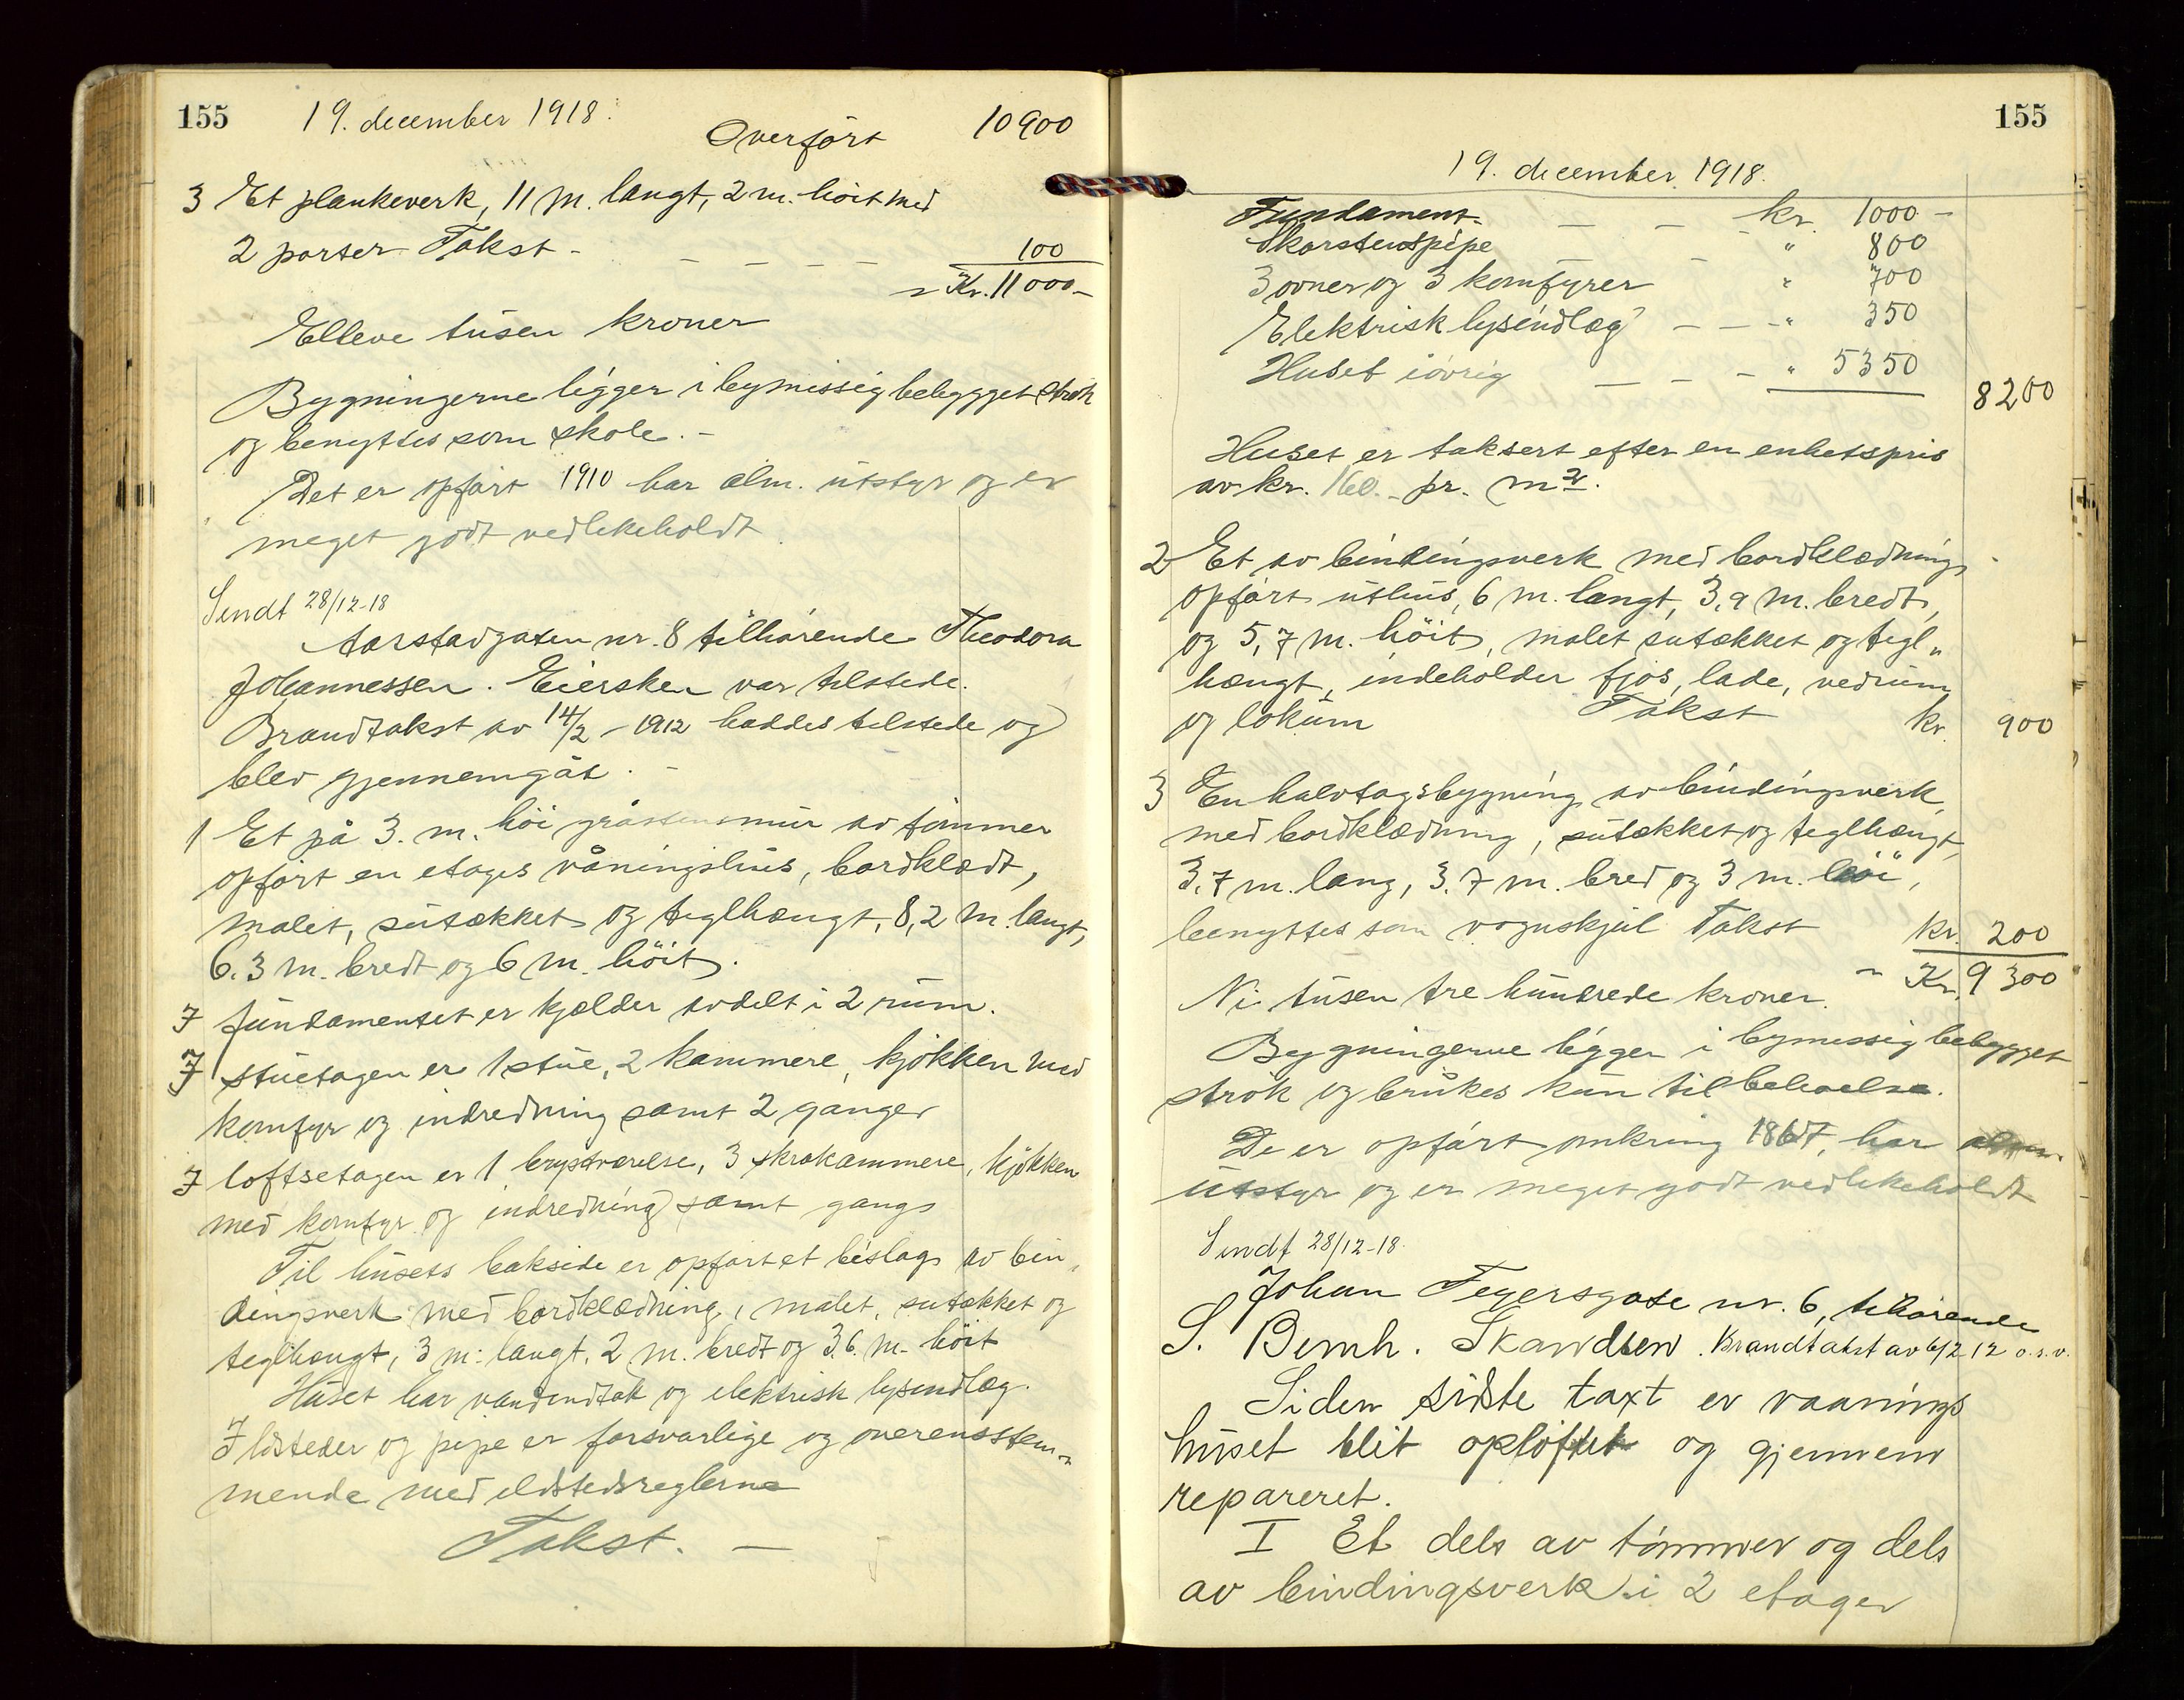 155 19. december 1918.
Overført 10900
3 Et plankeverk, 11 m. langt, 2 m. höit med
2 porter Takst - 100
Kr. 11000-
Elleve tusen kroner
Bygningerne ligger i bymessig bebygget strök
og benyttes som skole. -
Det er opført 1910 har alm. utstyr og er
meget godt vedlikeholdt
Sendt 28/12-18
Aarstadgaten nr. 8 tilhørende Theodora
Johannessen. Eiersken var tilstede.
Brandtakst av 14/2 - 1912 haddes tilstede og
blev gjennemgåt. -
1 Et på 3. m. höi gråstensmur av tømmer
opført en etages våningshus, bordklædt,
malet, sutækket og teglhængt, 8,2 m. langt,
6.3 m. bredt og 6 m. höit.
I fundamentet er kjælder avdelt i 2 rum.
I stuetagen er 1 stue, 2 kammere, kjökken med
komfyr og indredning samt 2 ganger
I loftsetagen er 1 brystværelse, 3 skrakammere, kjökken
med komfyr og indredning samt gangs
Til husets bakside er opført et bislag av bin„
dingsverk med bordklædning, malet, sutækket og
teglhængt, 3 m. langt, 2 m. bredt og 3.6. m. höit
Huset har vandindtak og elektrisk lysindlæg.
Ildsteder og pipe er forsvarlige og overensstem„
mende med ildstedsreglerne
Takst. -
155
19. december 1918.
Fundament - - - kr. 1000 -
Skorstenspipe - - " 800
3 ovner og 3 komfyrer " 700
Elektrisk lysindlæg - - - " 350
Huset iøvrig - - - " 5350
8200
Huset er taksert efter en enhetspris
av kr. 160.- pr. m2.
2 Et av bindingsverk med bordklædning
opført uthus, 6 m. langt, 3,9 m. bredt,
og 5,7 m. höit, malet sutækket og tegl„
hængt, indeholder fjøs, lade, vedrum
og lokum Takst kr. 900
3 En halvtagsbygning av bindingsverk
med bordklædning, sutækket og teglhængt,
3.7 m. lang, 3.7 m. bred og 3 m. höi,
benyttes som vognskjul Takst kr. 200
Kr. 9300
Ni tusen tre hundrede kroner.
Bygningerne ligger i bymessig bebygget
strök og brukes kun til beboelse.
De er opført omkring 1867, har alm.
utstyr og er meget godt vedlikeholdt
Sendt 28/12-18.
Johan Fegersgate nr. 6, tilhørende
S. Bernh. Skandsen. Brandtakst av 6/2 12 o.s.v.
Siden sidste taxt er vaanings
huset blit oplöftet og gjennem
repareret.
I Et dels av tömmer og dels
av bindingsverk i 2 etager